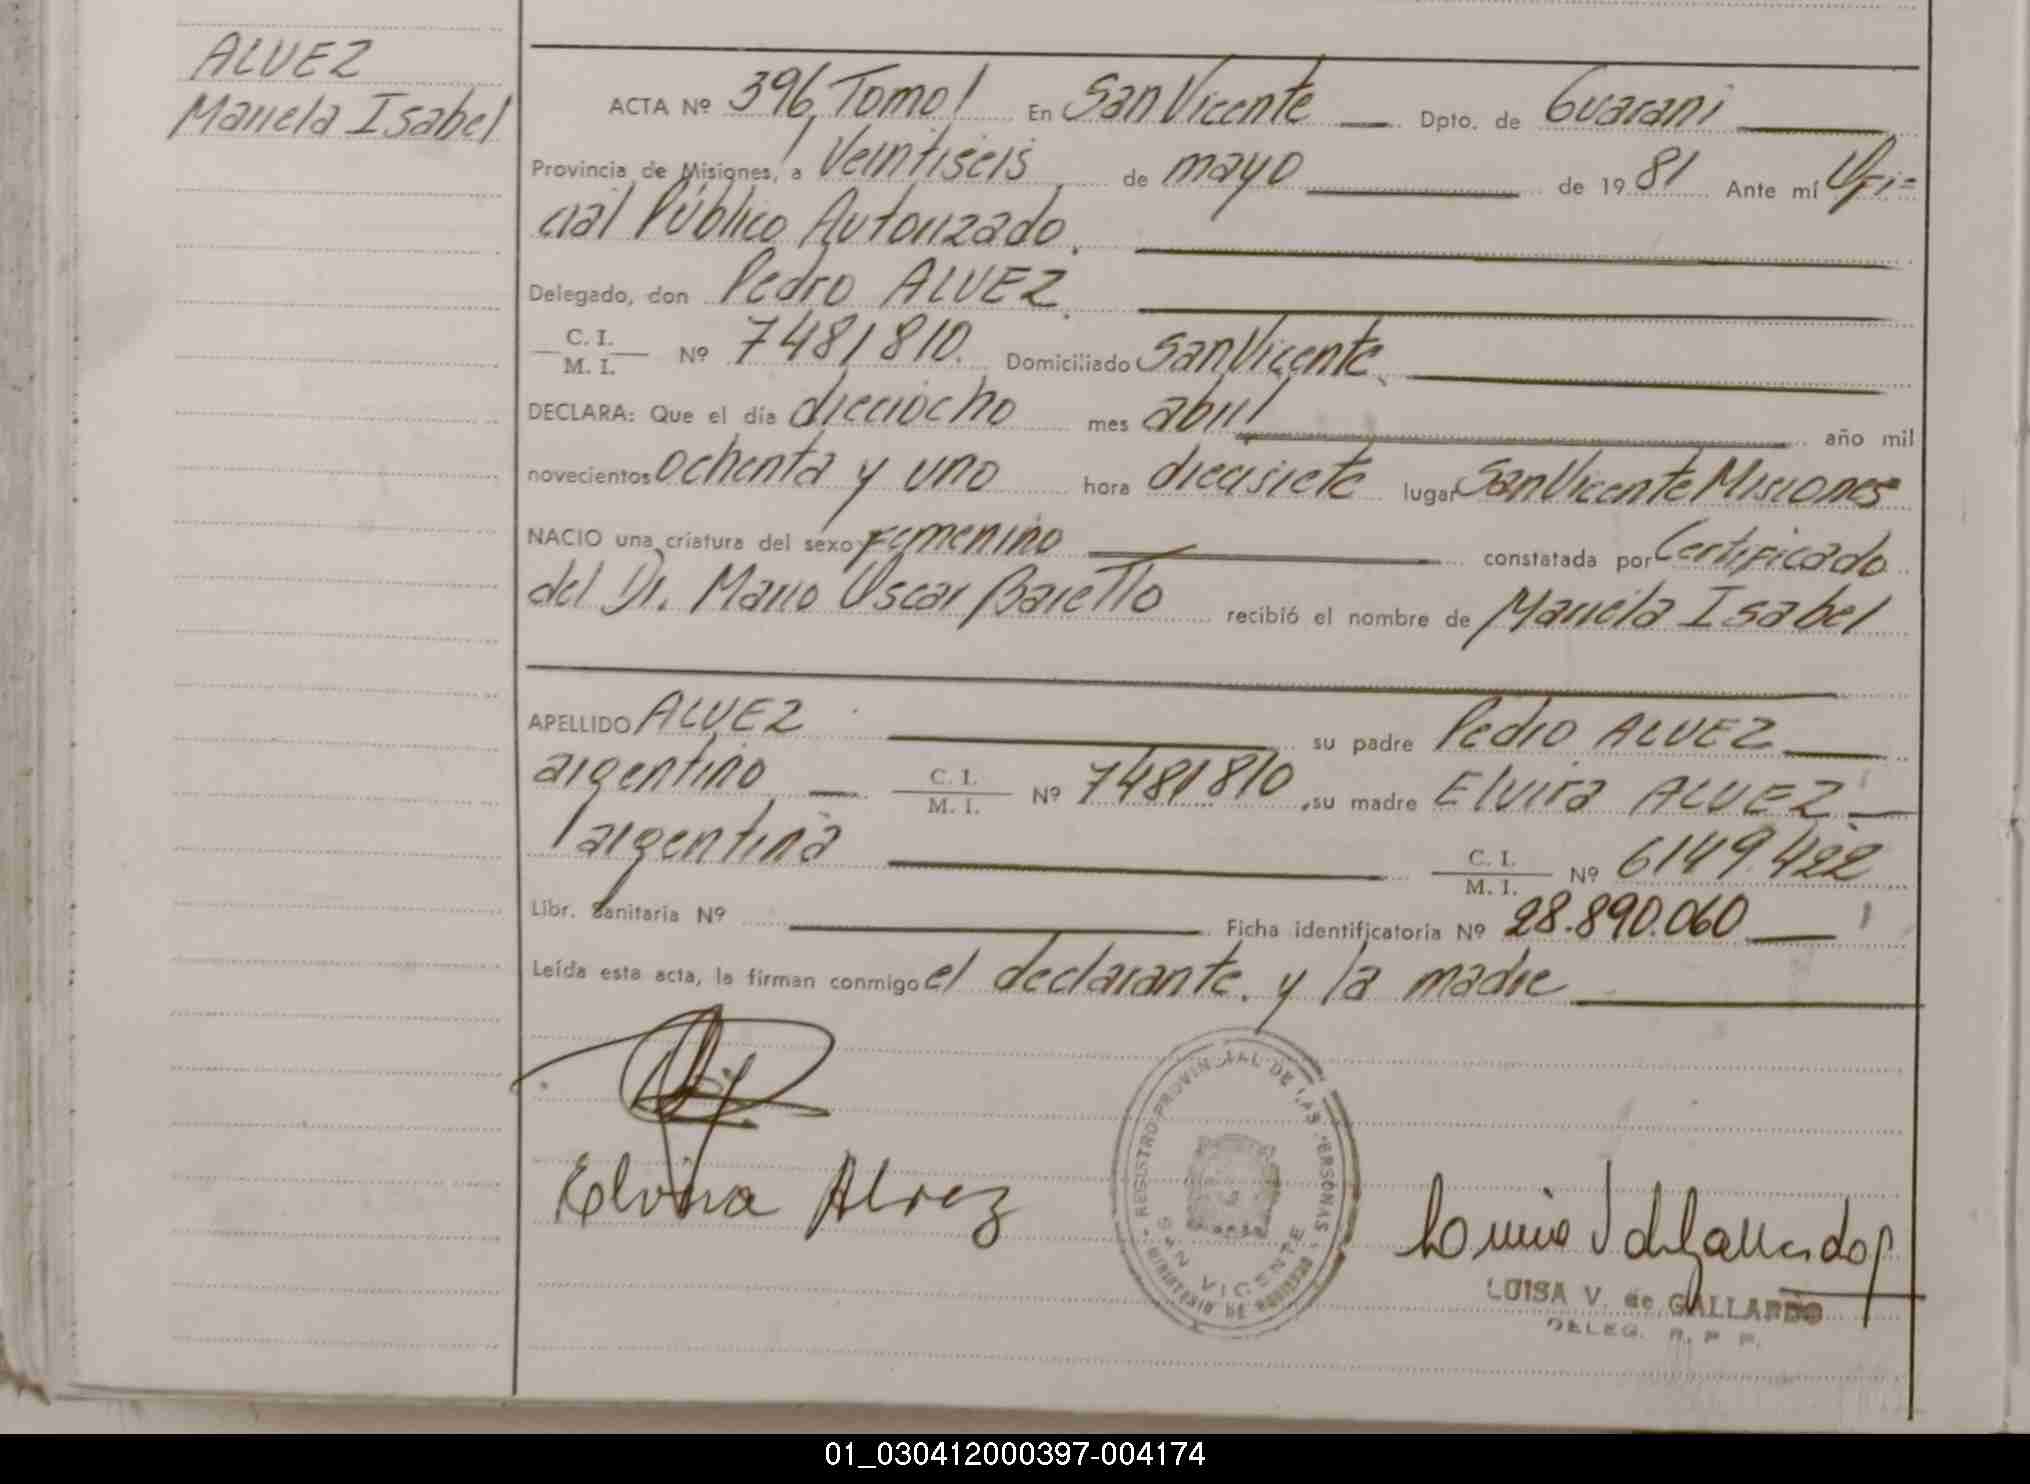 ALVEZ
Mariela Isabel
ACTA Nº 396, Tomo I En San Vicente Dpto. de Guaraní
Provincia de Misiones, a Veintiseis de mayo de 1981 Ante mí Ofi-
cial Público Autorizado.
Delegado, don Pedro ALVEZ.
C. I.
M. I.
Nº 7481810. Domiciliado San Vicente.
DECLARA: Que el día dieciocho mes abril año mil
novecientos ochenta y uno hora diecisiete lugar San Vicente Misiones
NACIO una criatura del sexo Femenino constatada por Certificado
del Dr. Mario Oscar Baretto recibió el nombre de Mariela Isabel
APELLIDO ALVEZ su padre Pedro ALVEZ
argentino C. I. M. I. Nº 7481810, su madre Elvira ALVEZ
argentina C. I. M. I. Nº 6149.422
Libr. Sanitaria Nº Ficha identificatoria Nº 28.890.060
Leída esta acta, la firman conmigo el declarante. y la madre
Elvira Alvez
REGISTRO PROVINCIAL DE LAS PERSONAS
SAN VICENTE
LUISA V. de GALLARDO
DELEG. R. P. P.
01_030412000397-004174